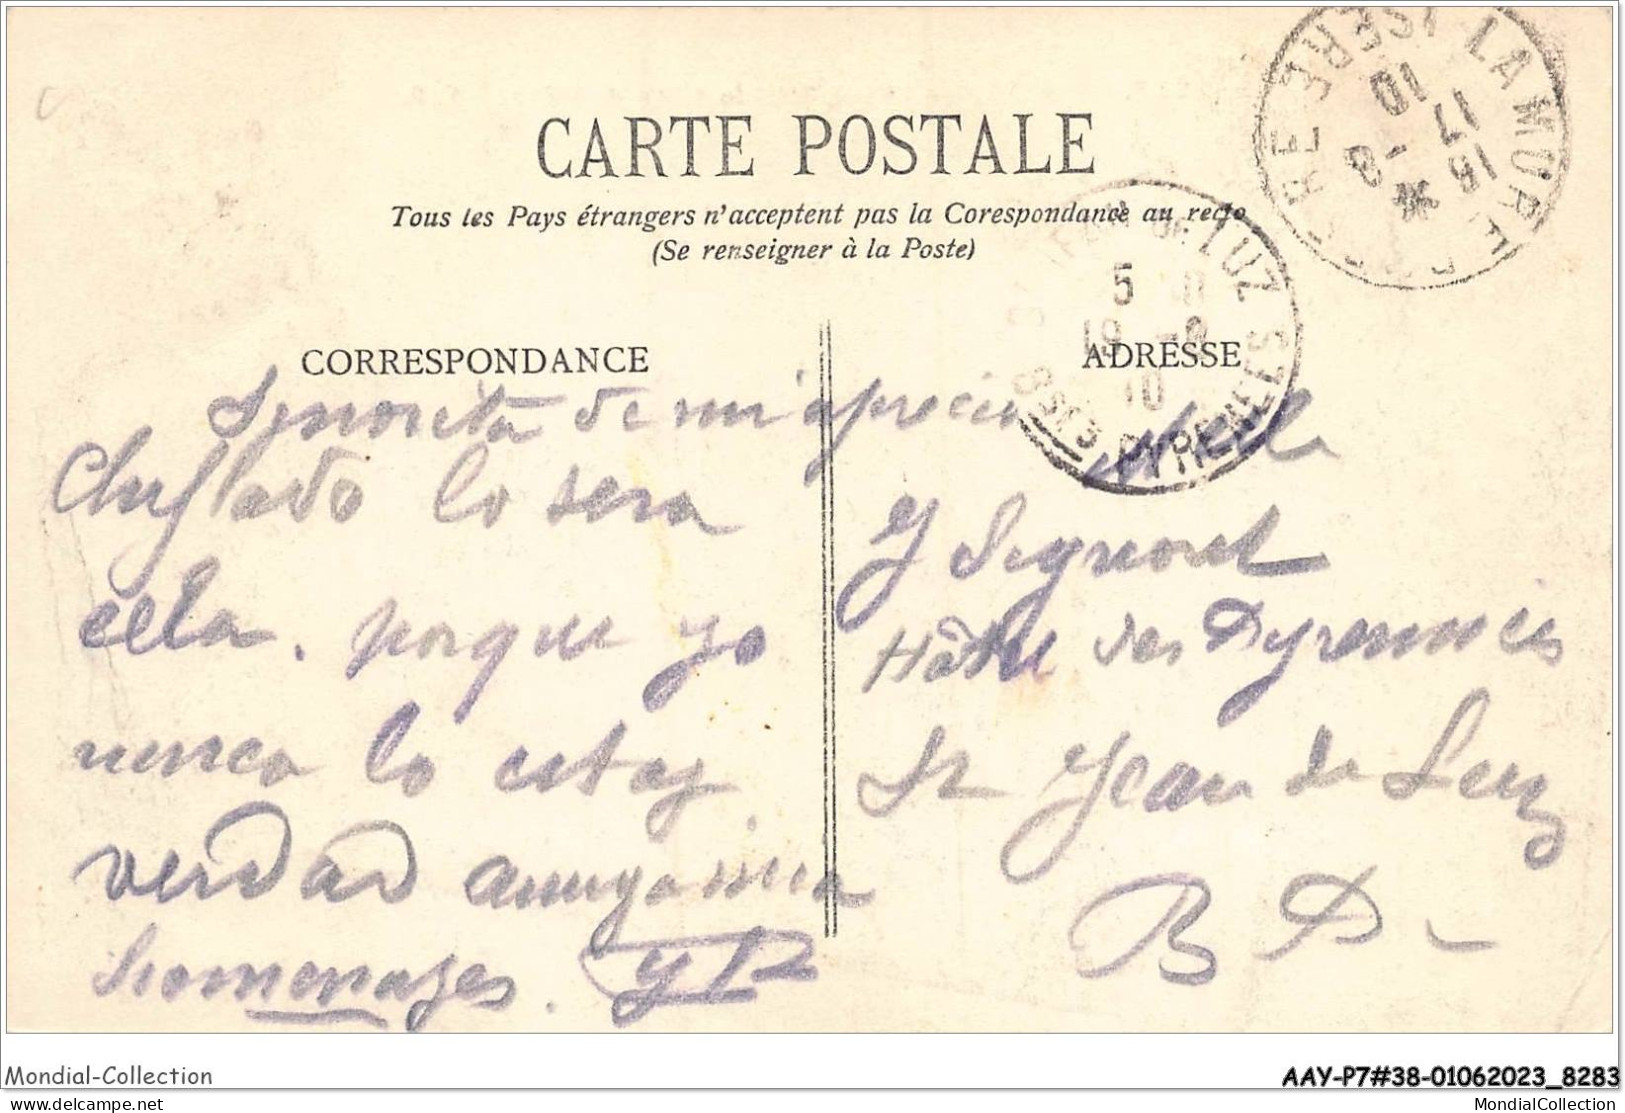 CARTE POSTALE
Tous les Pays étrangers n'acceptent pas la Corespondance au recto
(Se renseigner à la Poste)
LA MURE ISERE
17
18 - 8
10
JEAN DE LUZ
5
19 - 8
10
BSES PYRENEES
CORRESPONDANCE
ADRESSE
Signorita de mi aprecio
Chiflado lo sera
ella. porque yo
nunca lo estoy
verdad
homenages. y
Melle
Y Signoret
Hôtel des Pyrennées
St Jean de Luz
B P-
Mondial-Collection
AAY-P7#38-01062023_8283
delcampe.net
MondialCollection